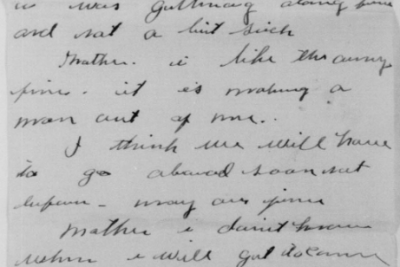 is was gutting along fine
and not a bit sick
Mother. i like the army
fine. it is making a
man out of me..
I think we will have
to go aboad soon not
before - may
Mother i don't know
when i will get to come